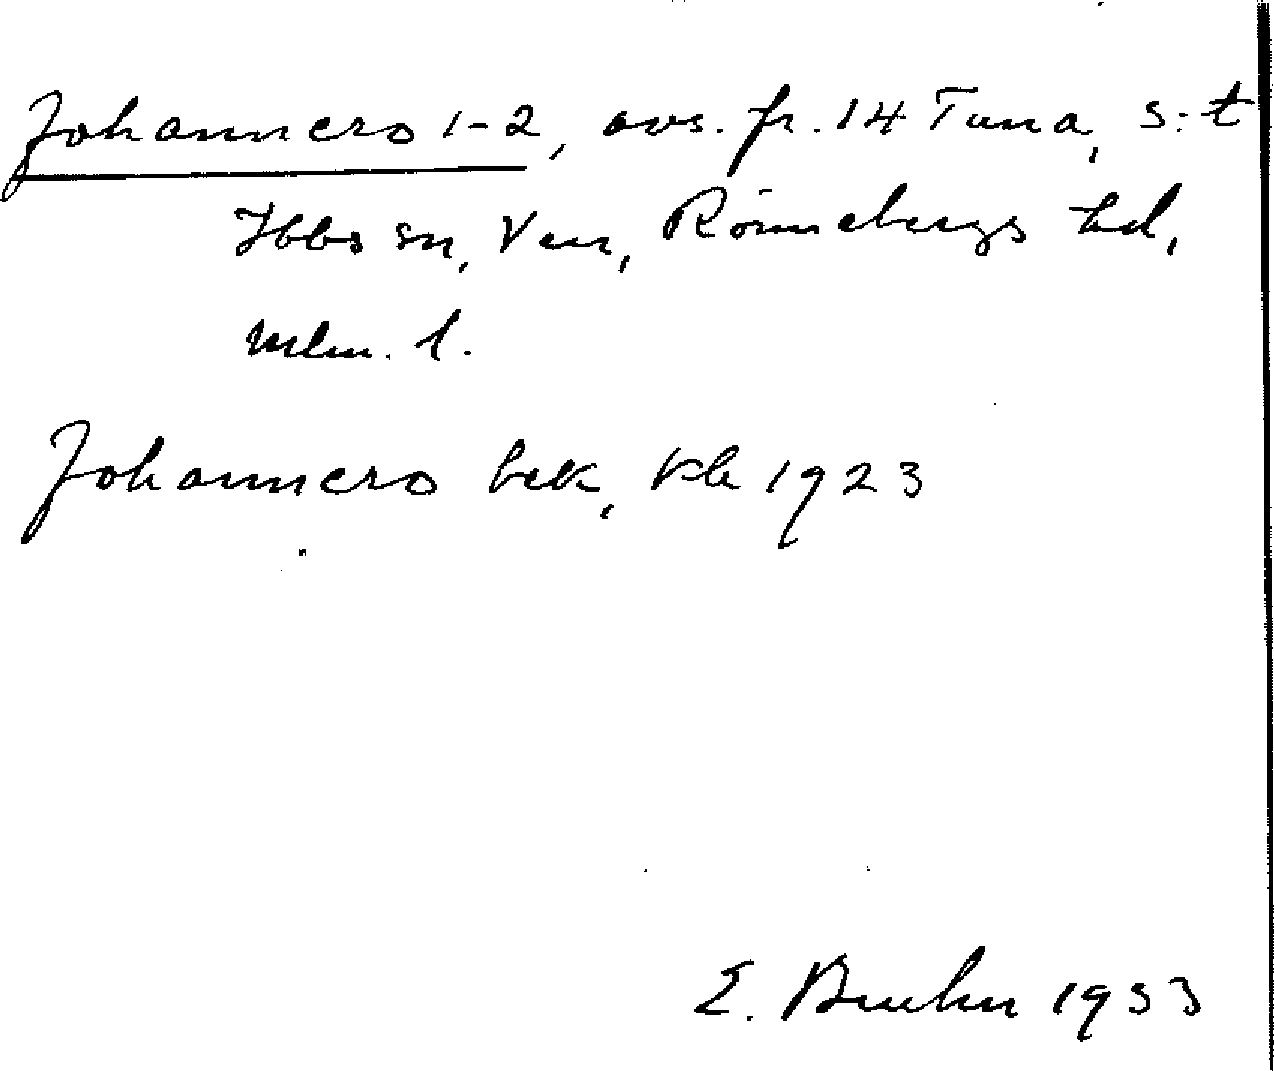 Johannero 1-2, avs. fr. 14 Tuna, S:t
Ibbs sn, Ven, Rönnebergs hd,
Mlm. l.
Johannero bek, kb 1923
E. Bruhn 1933